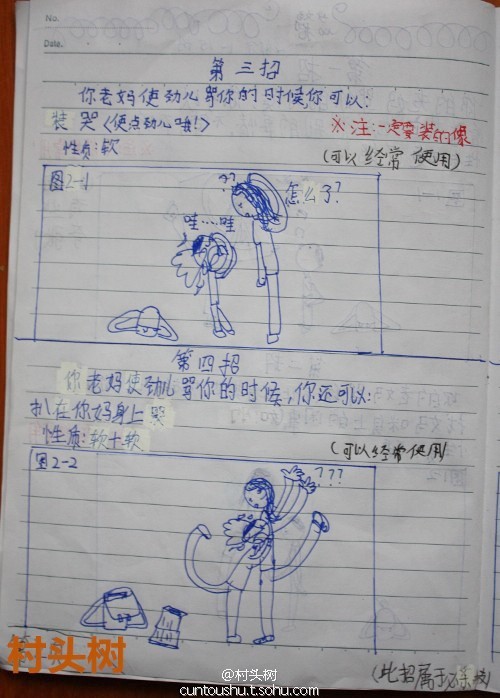 No.
Date.
第三招
你老妈使劲儿骂你的时候,你可以:
装哭<使点劲儿哦!>
※注:一定要装的像
性质:软
(可以经常使用)
图2-1
??
怎么了?
哇…哇
第四招
你老妈使劲儿骂你的时候,你还可以:
扒在你妈身上哭
性质:软+软
(可以经常使用)
图2-2
???
村头树
(此招属于
@村头树
cuntoushu.t.sohu.com